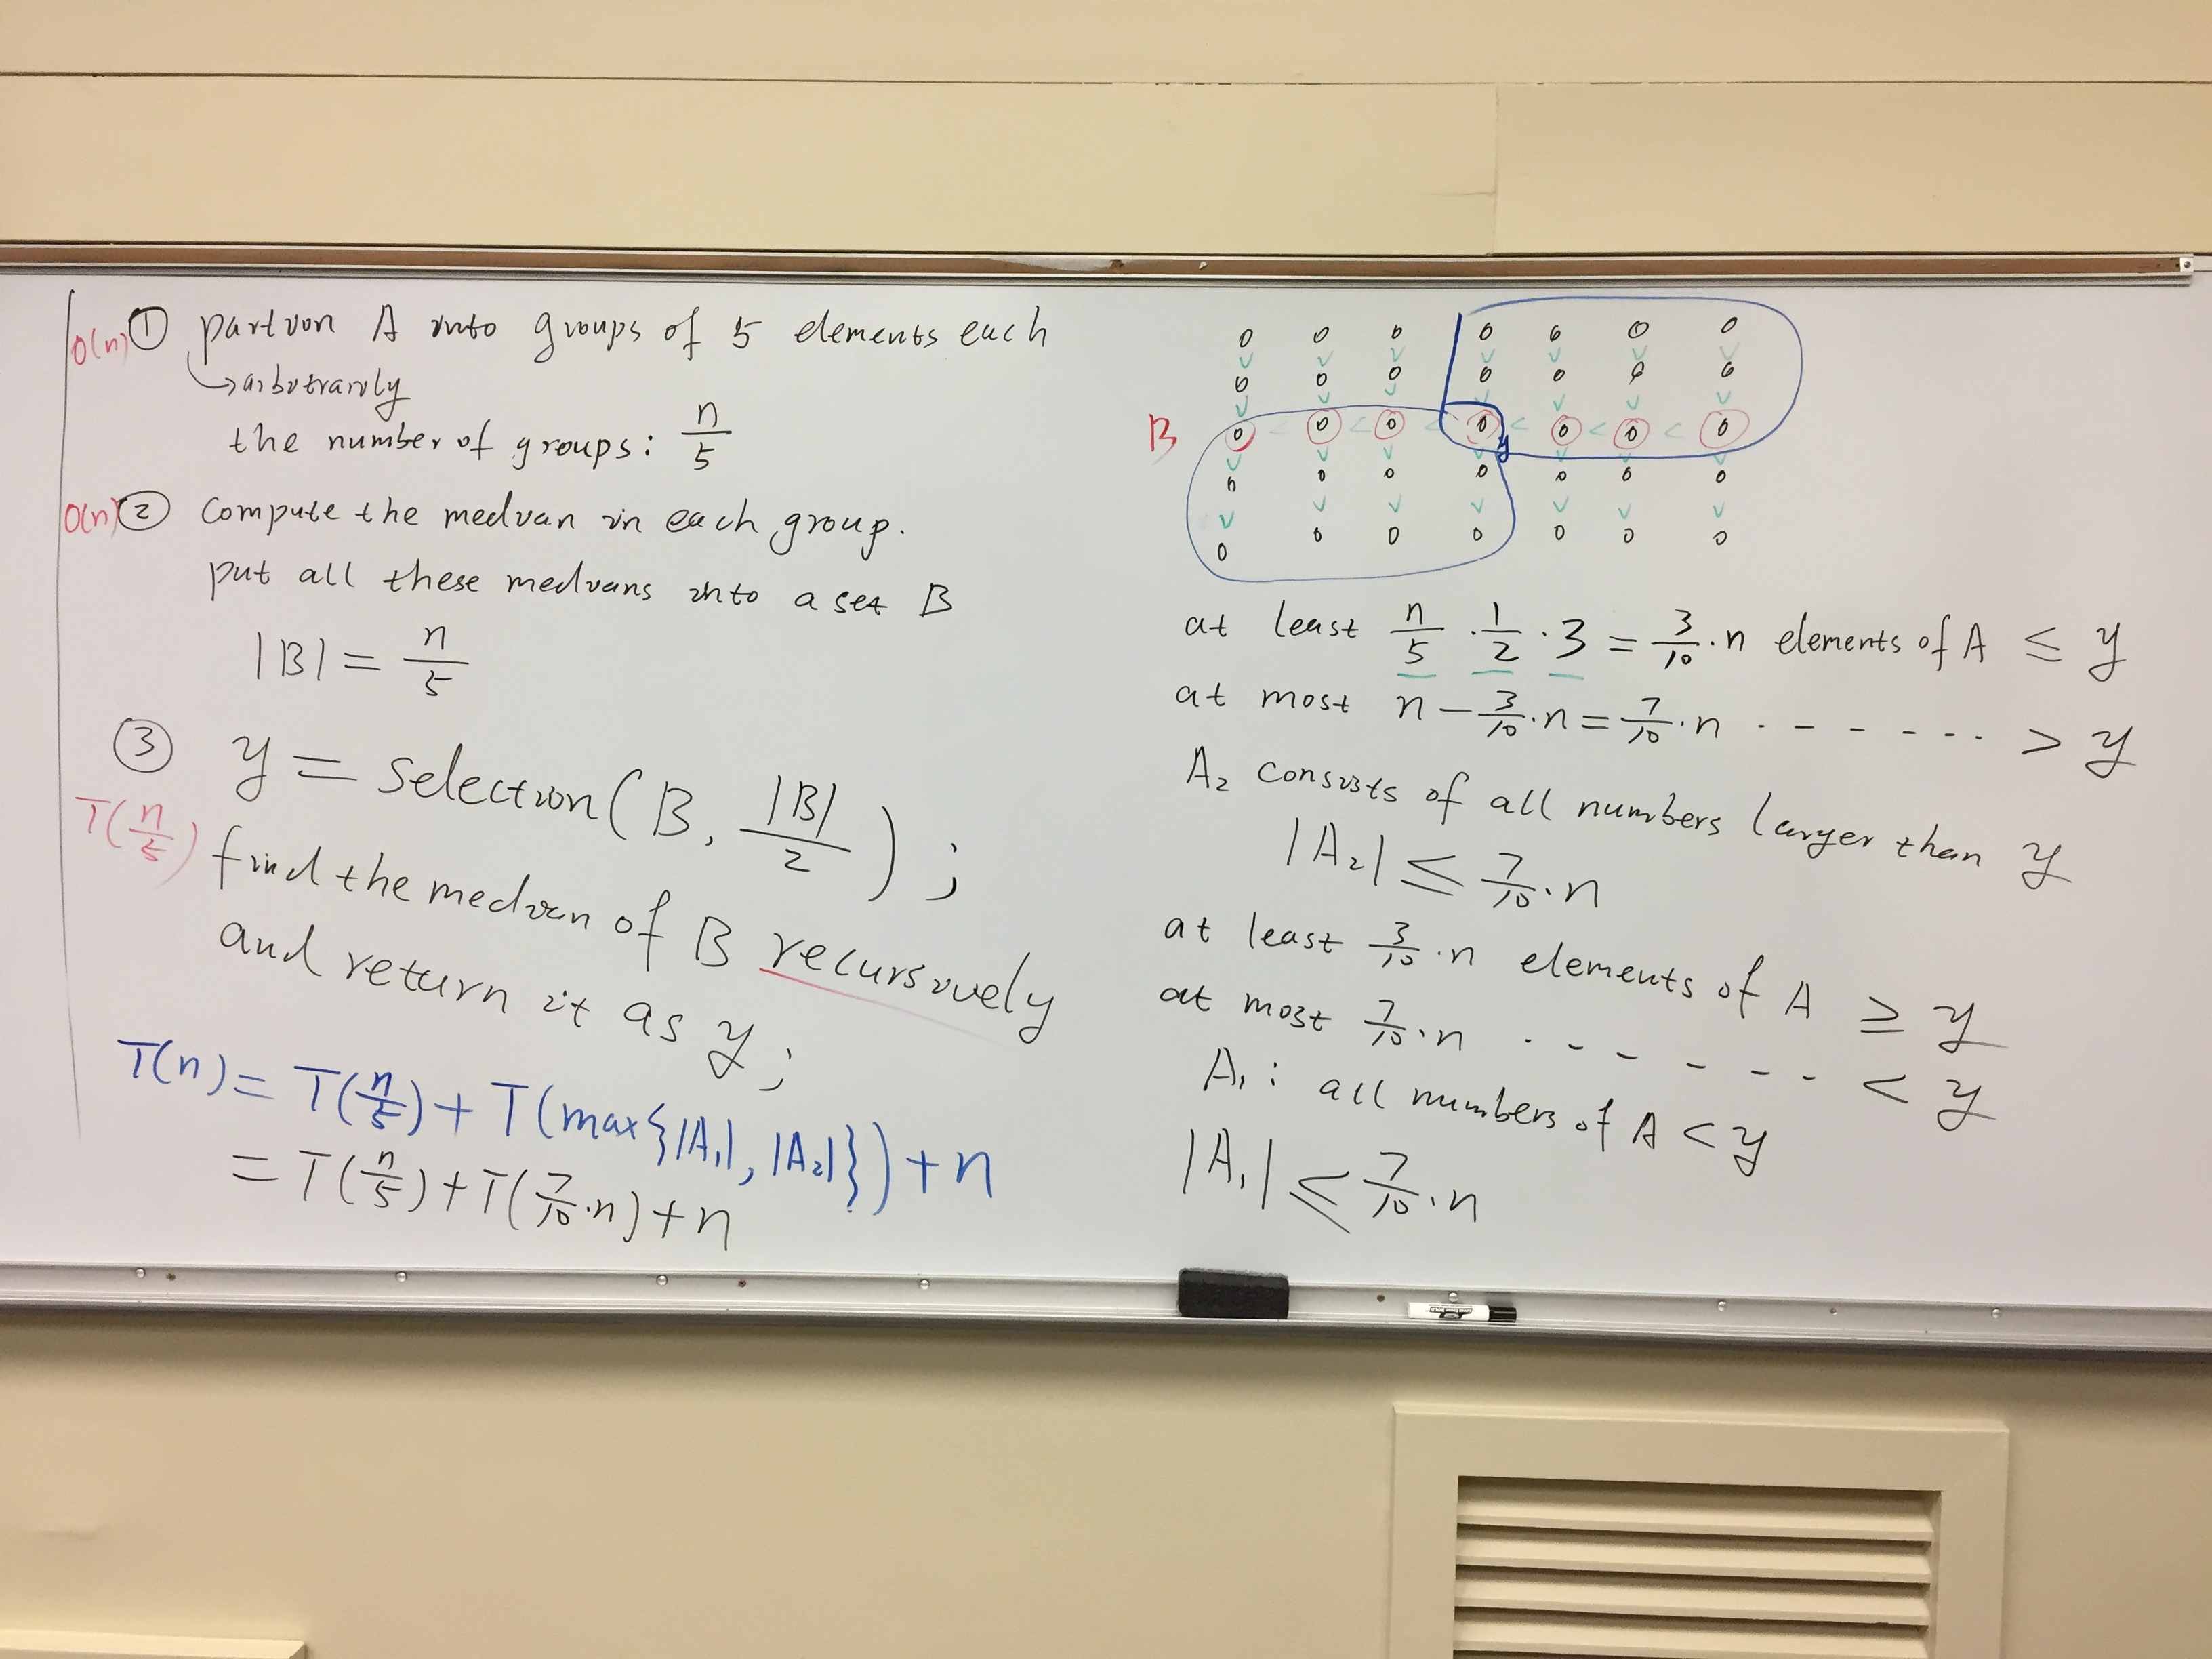 O(n) ① partition A into groups of 5 elements each
→ arbitrarily
the number of groups: n/5
O(n) ② Compute the median in each group.
put all these medians into a set B
|B| = n/5
③ y = Selection(B, |B|/2);
T(n/5) find the median of B recursively
and return it as y;
T(n) = T(n/5) + T(max{|A₁|, |A₂|}) + n
= T(n/5) + T(7/10·n) + n
0 0 0 0 0 0 0
∨ ∨ ∨ ∨ ∨ ∨ ∨
0 0 0 0 0 0 0
∨ ∨ ∨ ∨ ∨ ∨ ∨
B 0 < 0 < 0 < 0 y < 0 < 0 < 0
∨ ∨ ∨ ∨ ∨ ∨ ∨
0 0 0 0 0 0 0
∨ ∨ ∨ ∨ ∨ ∨ ∨
0 0 0 0 0 0 0
at least n/5 · 1/2 · 3 = 3/10 · n elements of A ≤ y
at most n − 3/10 · n = 7/10 · n - - - - - - - > y
A₂ consists of all numbers larger than y
|A₂| ≤ 7/10 · n
at least 3/10 · n elements of A ≥ y
at most 7/10 · n - - - - - - - < y
A₁ : all numbers of A < y
|A₁| ≤ 7/10 · n